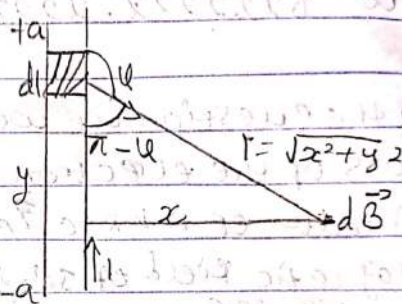 +a
dl φ
π-φ r = √x²+y²
y
x dB⃗
I
-a